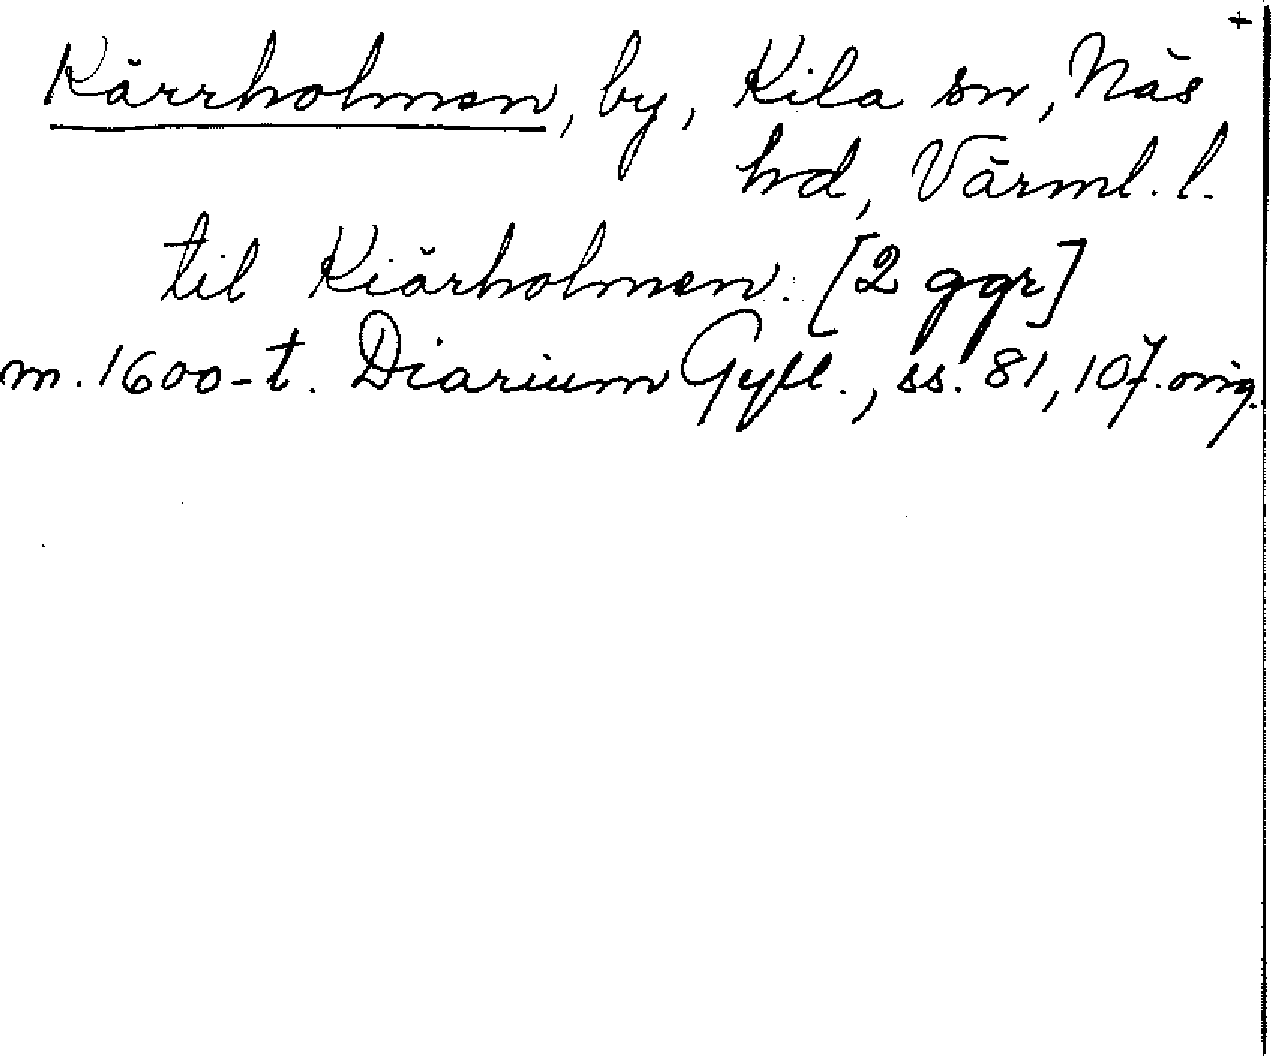 +
Kärrholmen, by, Kila sn, Näs
hd, Värml. l.
til Kiärholmen. [2 ggr]
m. 1600-t. Diarium Gyll., ss. 81, 107. orig.